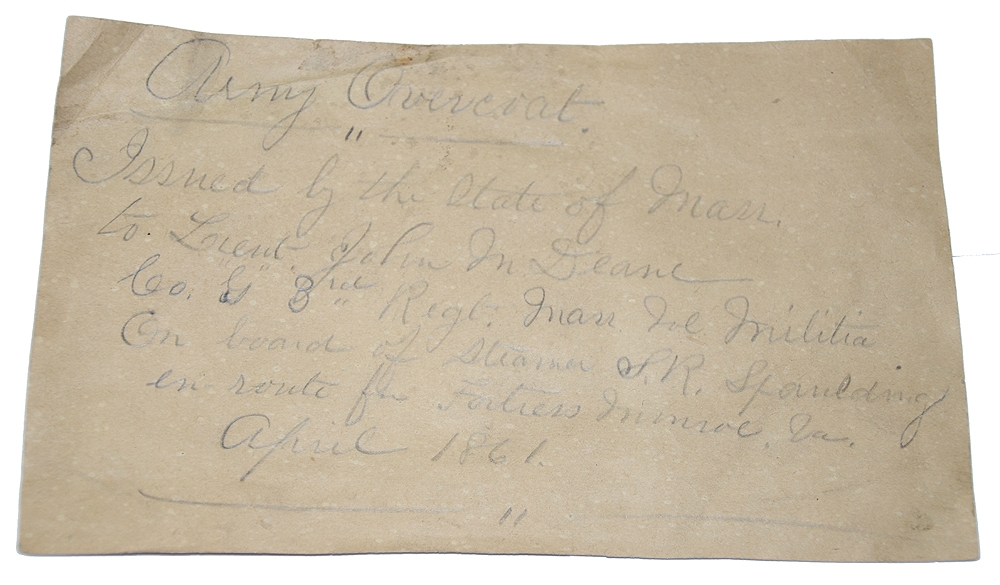 Army Overcoat.
"
Issued by the State of Mass.
to Lieut. John M Deane
Co. "G" 3rd Regt. Mass Vol Militia
On board of Steamer S.R. Spaulding
en route for Fortress Monroe, Va.
April 1861.
"